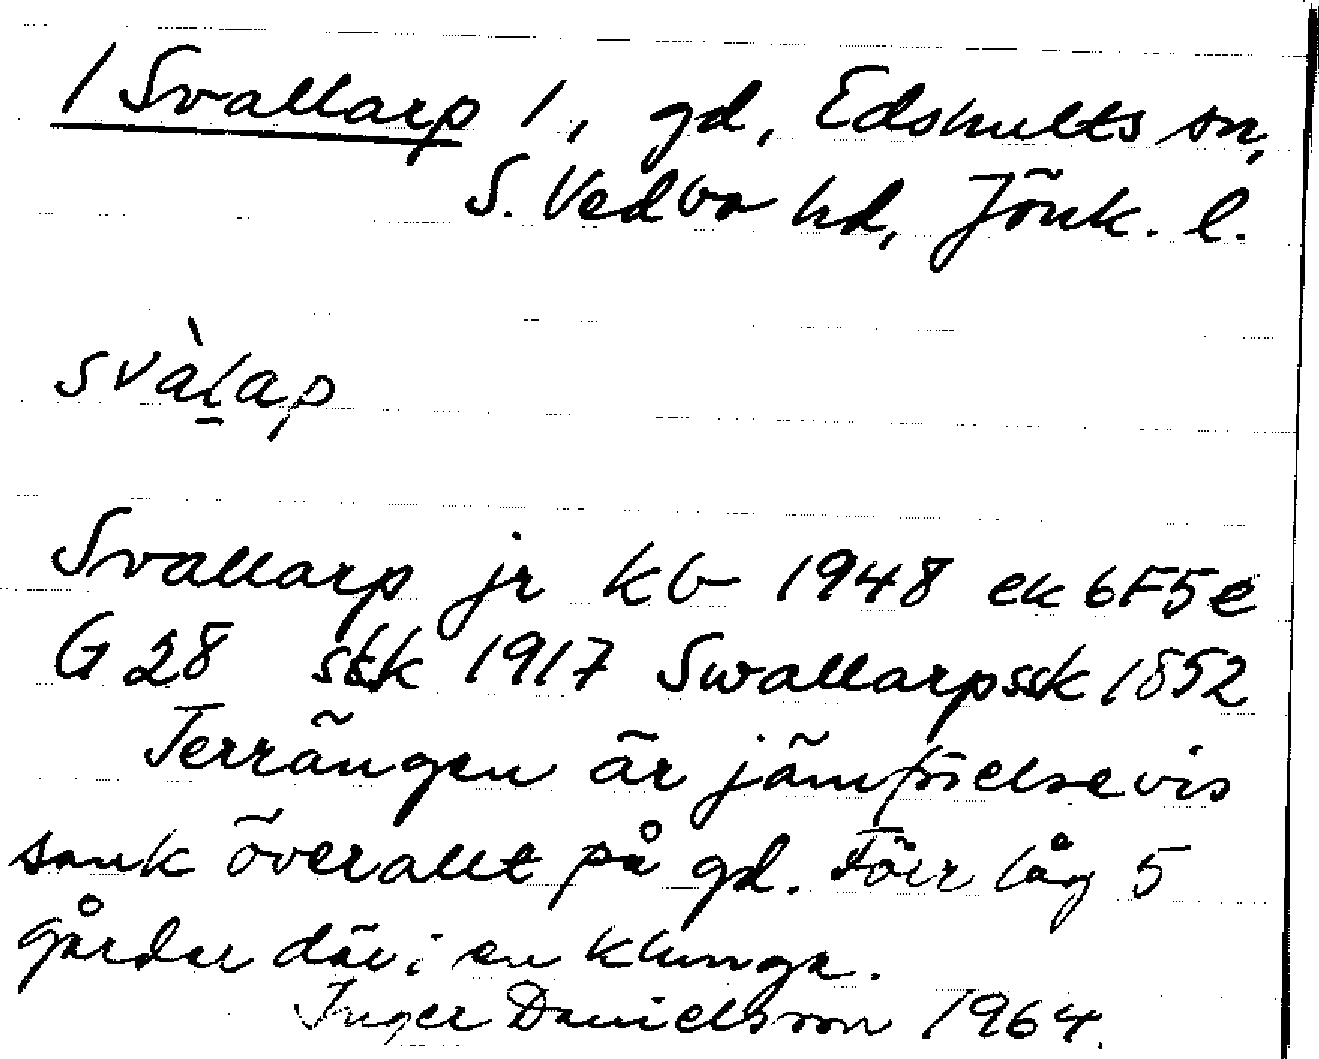 / Svallarp /, gd, Edshults sn,
S. Vedbo hd, Jönk. l.
svàḻap
Svallarp jr kb 1948 ek 6F5e
G 28 stk 1917 Swallarp ssk 1852
Terrängen är jämförelsevis
sank överallt på gd. Förr låg 5
gårdar där i en klunga.
Inger Danielsson 1964.